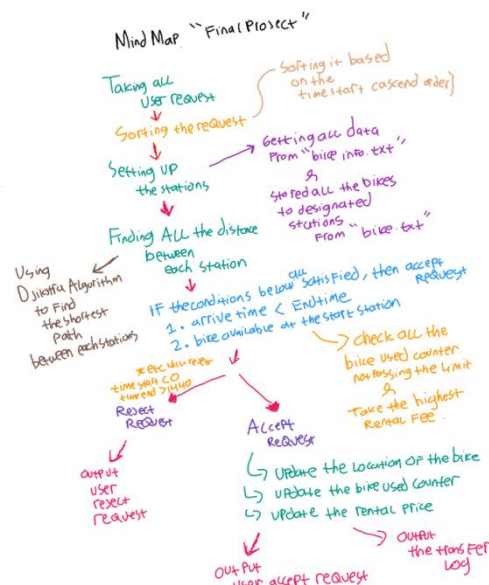 Mind Map "Final Project"
Taking all
user request
Sorting it based
on the
time start (ascend order)
Sorting the request
Setting UP
the stations
Getting all data
From "bike info.txt"
&
stored all the bikes
to designated
stations
From "bike.txt"
Finding All the distance
between
each station
Using
Djikstra Algorithm
to Find
the shortest
Path
between each stations
IF the conditions below all satisfied, then accept
request
1. arrive time < Endtime
2. bike available at the start station
check all the
bike used counter
not Passing the limit
&
Take the highest
Rental Fee.
time start < 0
time end > 1440
Reject
Request
Accept
Request
output
user
reject
request
update the location OF the bike
update the bike used counter
update the rental price
output
user accept request
output
the transfer
Log